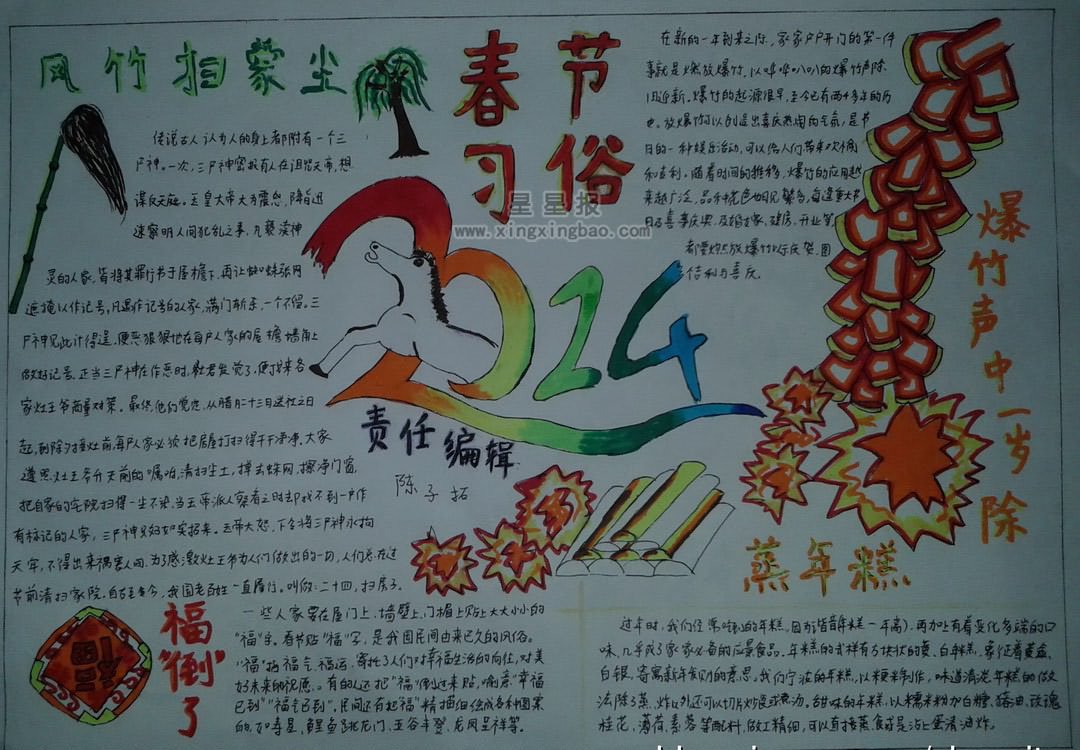 风竹扫蒙尘
春节
习俗
传说古人认为人的身上都附有一个三
尸神。一次,三尸神密报有人在诅咒天帝,想
谋反天庭。玉皇大帝大为震怒,降旨迅
速察明人间犯乱之事,凡亵渎神
灵的人家,皆将其罪行书于屋檐下,再让蜘蛛张网
遮掩以作记号,凡遇作记号的人家,满门斩杀,一个不留。三
尸神见此计得逞,便恶狠狠地在每户人家的屋檐墙角上
做好记号。正当三尸神在作恶时,灶君发觉了,便找来各
家灶王爷商量对策。最终,他们觉定,从腊月二十三日送灶之日
起,到除夕接灶前,每户人家必须把房屋打扫得干干净净。大家
遵照灶王爷升天前的嘱咐,清扫尘土,掸去蛛网,擦净门窗,
把自家的宅院扫得一尘不染。当王帝派人察看之时却找不到一户作
有标记的人家,三尸神只好如实招来。玉帝大怒,下令将三尸神永拘
天牢,不得出来祸害人间。为了感激灶王爷为人们做出的一切,人们总在过
节前清扫家院。自古至今,我国老百姓一直履行。叫做:二十四,扫房子。
在新的一年到来之际,家家户户开门的第一件
事就是燃放爆竹,以哔哔叭叭的爆竹声除
旧迎新。爆竹的起源很早,至今已有两千多年的历
史。放爆竹可以创造出喜庆热闹的气氛,是节
日的一种娱乐活动,可以给人们带来欢愉
和吉利。随着时间的推移,爆竹的应用越
来越广泛,品种花色也日见繁多,每逢重大节
日及喜事庆典,及婚嫁、建房、开业等,
都要燃放爆竹以示庆贺,图
吉利与喜庆。
星星报
www.xingxingbao.com
2014
责任编辑
陈子拓
爆竹声中一岁除
蒸年糕
福
福"倒"了
一些人家要在屋门上、墙壁上、门楣上贴上大大小小的
"福"字。春节贴"福"字,是我国民间由来已久的风俗。
"福"指福气、福运,寄托了人们对幸福生活的向往,对美
好未来的祝愿。有的人还把"福"倒过来贴,喻意:"幸福
已到""福气已到"。民间还有把"福"精描细绘成各种图案
的,有寿星、鲤鱼跳龙门、五谷丰登、龙凤呈祥等。
过年时,我们经常吃到的年糕,因为谐音年糕(一年高),再加上有着变化多端的口
味,几乎成了家家必备的应景食品。年糕的式样有方块状的黄、白年糕,象征着黄金、
白银,寄寓新年发财的意思。我们宁波的年糕,以粳米制作,味道清淡。年糕的做
法除了蒸、炸以外还可以切片炒食或煮汤。甜味的年糕,以糯米粉加白糖、猪油、玫瑰
桂花、薄荷、素蓉等配料,做工精细,可以直接蒸食或是沾上蛋清油炸。